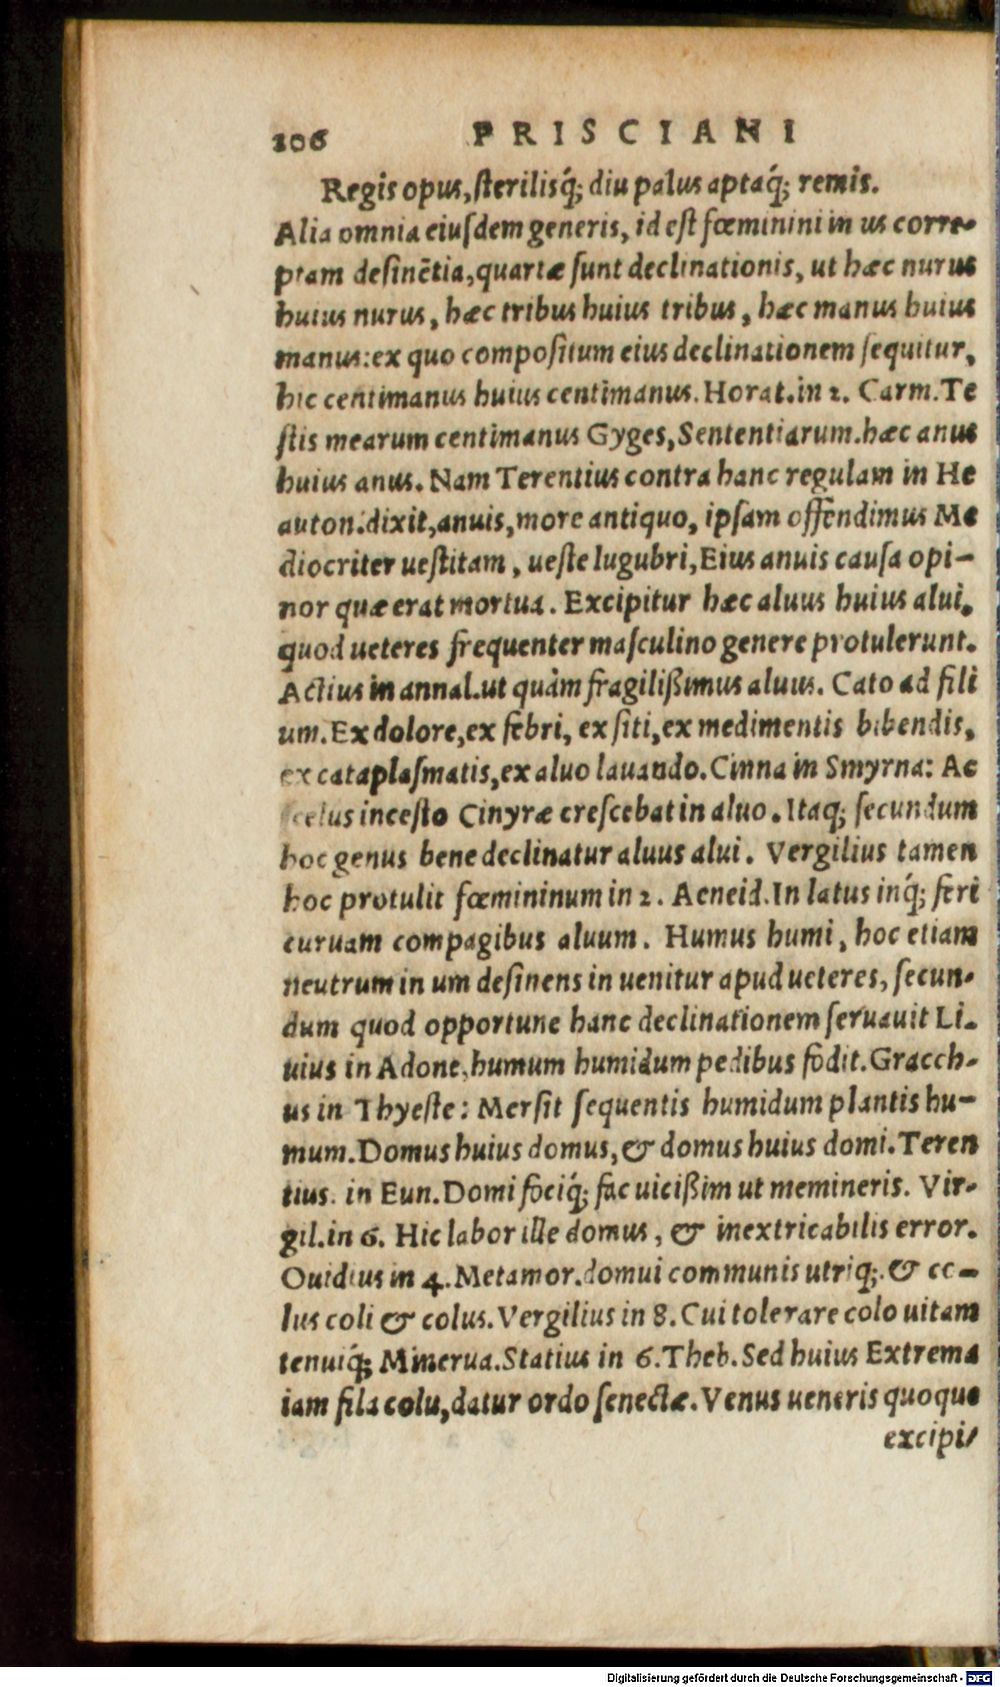 106 PRISCIANI
Regis opus, ſterilisq́; diu palus aptaq́; remis.
Alia omnia eiuſdem generis, id eſt fœminini in us corre-
ptam deſinētia, quartæ ſunt declinationis, ut hæc nurus
huius nurus, hæc tribus huius tribus, hæc manus huius
manus: ex quo compoſitum eius declinationem ſequitur,
hic centimanus huius centimanus. Horat. in 2. Carm. Te
ſtis mearum centimanus Gyges, Sententiarum. hæc anus
huius anus. Nam Terentius contra hanc regulam in He
auton. dixit, anuis, more antiquo, ipſam offendimus Me
diocriter ueſtitam, ueſte lugubri, Eius anuis cauſa opi-
nor quæ erat mortua. Excipitur hæc aluus huius alui,
quod ueteres frequenter maſculino genere protulerunt.
Actius in annal. ut quàm fragilißimus aluus. Cato ad fili
um. Ex dolore, ex febri, ex ſiti, ex medimentis bibendis,
ex cataplaſmatis, ex aluo lauando. Cinna in Smyrna: Ac
ſcelus inceſto Cinyræ creſcebat in aluo. Itaq; ſecundum
hoc genus bene declinatur aluus alui. Vergilius tamen
hoc protulit fœmininum in 2. Aeneid. In latus inq́; feri
curuam compagibus aluum. Humus humi, hoc etiam
neutrum in um deſinens in uenitur apud ueteres, ſecun-
dum quod opportune hanc declinationem ſeruauit Li-
uius in Adone, humum humidum pedibus fodit. Gracch-
us in Thyeſte: Merſit ſequentis humidum plantis hu-
mum. Domus huius domus, & domus huius domi. Teren
tius. in Eun. Domi fociq́; fac uicißim ut memineris. Vir-
gil. in 6. Hic labor ille domus, & inextricabilis error.
Ouidius in 4. Metamor. domui communis utriq;. & co-
lus coli & colus. Vergilius in 8. Cui tolerare colo uitam
tenuiq́; Minerua. Statius in 6. Theb. Sed huius Extrema
iam fila colu, datur ordo ſenectæ. Venus ueneris quoque
excipi/
Digitalisierung gefördert durch die Deutsche Forschungsgemeinschaft - DFG